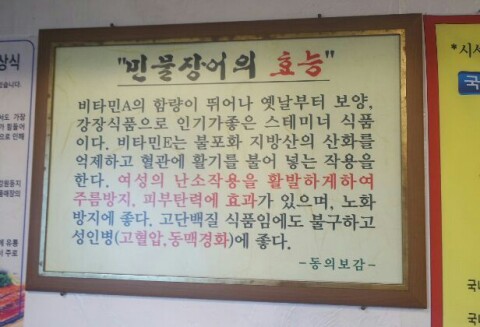 "민물장어의 효능"
비타민A의 함량이 뛰어나 옛날부터 보양,
강장식품으로 인기가좋은 스테미너 식품
이다. 비타민E는 불포화 지방산의 산화를
억제하고 혈관에 활기를 불어 넣는 작용을
한다. 여성의 난소작용을 활발하게하여
주름방지, 피부탄력에 효과가 있으며, 노화
방지에 좋다. 고단백질 식품임에도 불구하고
성인병(고혈압,동맥경화)에 좋다.
-동의보감-
상식
*시
국
국
국